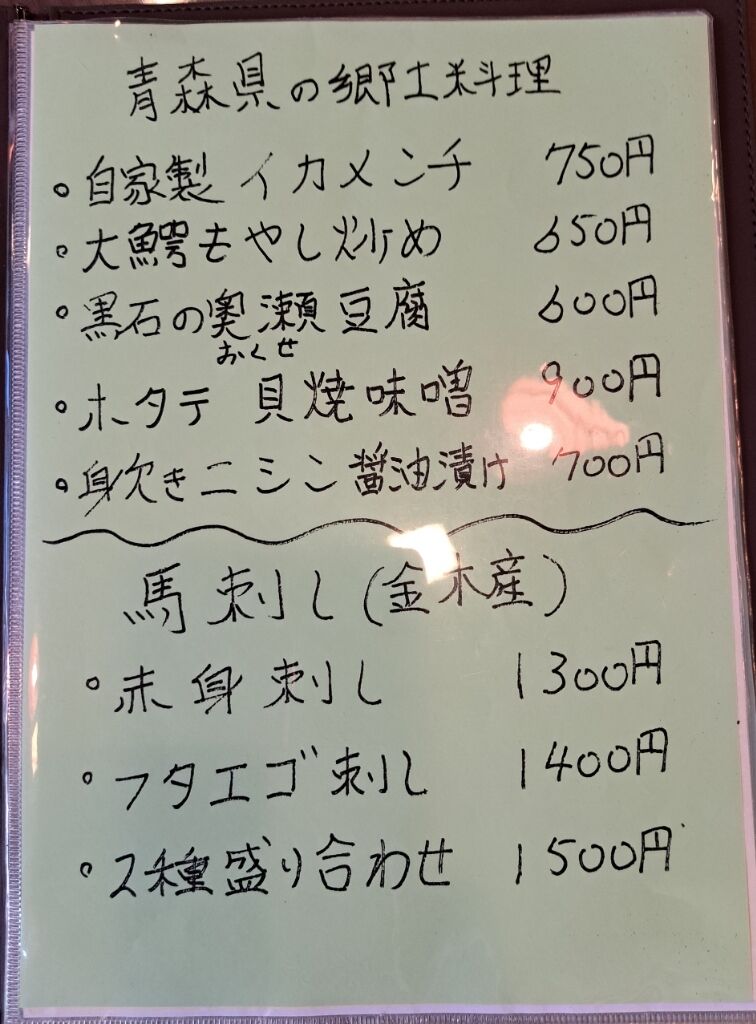 青森県の郷土料理
。自家製 イカメンチ 750円
。大鰐もやし炒め 650円
。黒石の奥瀬豆腐 600円
おくせ
。ホタテ 貝焼味噌 900円
。身欠きニシン醤油漬け 700円
馬刺し(金木産)
。赤身刺し 1300円
。フタエゴ刺し 1400円
。2種盛り合わせ 1500円